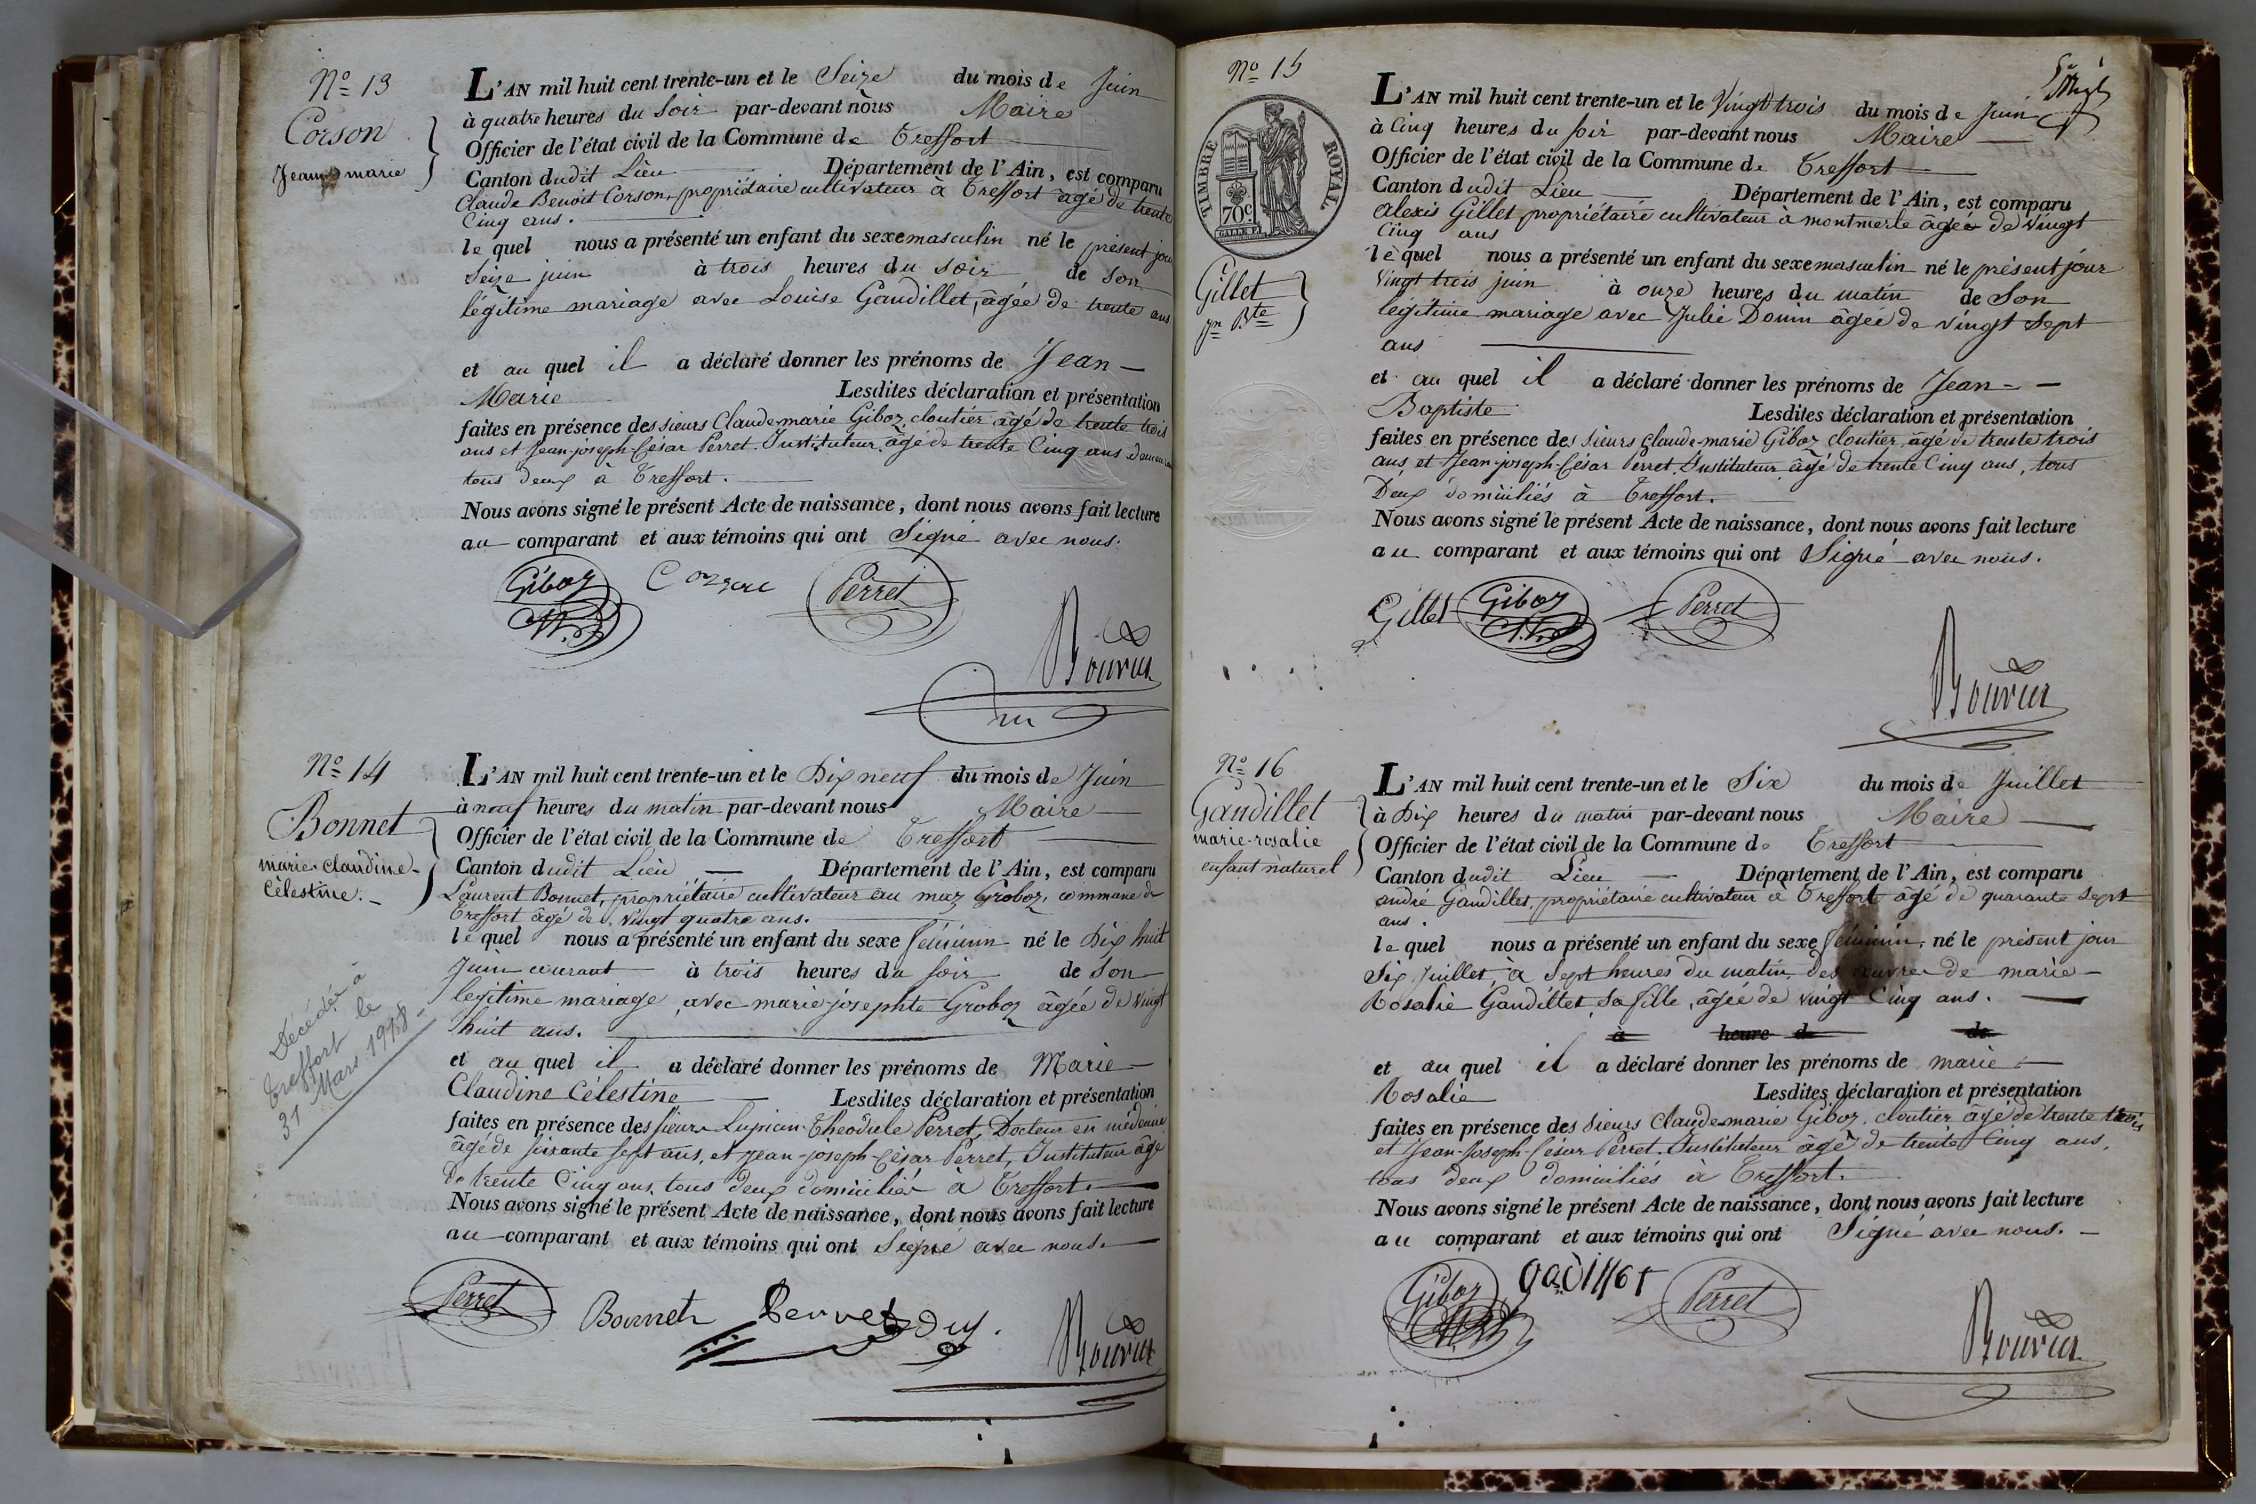 Nº 13
Corson
Jean marie
L'AN mil huit cent trente-un et le Seize du mois de Juin
à quatre heures du Soir par-devant nous Maire
Officier de l'état civil de la Commune de Treffort
Canton dudit Lieu Département de l'Ain, est comparu
Claude Benoit Corson, propriétaire cultivateur à Treffort âgé de trente
Cinq ans.
le quel nous a présenté un enfant du sexe masculin né le présent jour
Seize juin à trois heures du soir de son
légitime mariage avec Louise Gaudillet, âgée de trente ans
et au quel il a déclaré donner les prénoms de Jean
Marie Lesdites déclaration et présentation
faites en présence des sieurs Claude marie Giboz, cloutier âgé de trente trois
ans et Jean-joseph-César Perret. Instituteur âgé de trente Cinq ans
tous deux à Treffort.
Nous avons signé le présent Acte de naissance, dont nous avons fait lecture
au comparant et aux témoins qui ont Signé avec nous.
Giboz Corson Perret
Bouvier
Nº 14
Bonnet
marie claudine
Célestine.
L'AN mil huit cent trente-un et le Dix neuf du mois de Juin
à neuf heures du matin par-devant nous Maire
Officier de l'état civil de la Commune de Treffort
Canton dudit Lieu Département de l'Ain, est comparu
Laurent Bonnet, propriétaire cultivateur au maz Groboz, commune de
Treffort âgé de vingt quatre ans.
le quel nous a présenté un enfant du sexe féminin né le Dix huit
Juin courant à trois heures du soir de Son
legitime mariage, avec marie-josephte Groboz âgée de vingt
huit ans.
et au quel il a déclaré donner les prénoms de Marie
Claudine Célestine Lesdites déclaration et présentation
faites en présence des sieurs Lupicin-Theodule Perret, Docteur en médecine
âgé de soixante sept ans, et jean-joseph-César Perret, Instituteur âgé
de trente Cinq ans, tous deux domiciliés à Treffort.
Nous avons signé le présent Acte de naissance, dont nous avons fait lecture
au comparant et aux témoins qui ont Signé avec nous.
Décédée à
Treffort le
31 Mars 1918
Perret Bonnet Perret
Bouvier
Nº 15
TIMBRE ROYAL
70c.
Gillet
jn Bte
L'AN mil huit cent trente-un et le Vingt trois du mois de Juin
à Cinq heures du soir par-devant nous Maire
Officier de l'état civil de la Commune de Treffort
Canton dudit Lieu Département de l'Ain, est comparu
Alexis Gillet, propriétaire cultivateur à montmerle âgée de vingt
Cinq ans
le quel nous a présenté un enfant du sexe masculin né le présent jour
vingt trois juin à onze heures du matin de Son
légitime mariage avec Julie Donin âgée de vingt Sept
ans
et au quel il a déclaré donner les prénoms de Jean
Baptiste Lesdites déclaration et présentation
faites en présence des sieurs claude-marie Giboz cloutier, âgé de trente trois
ans, et Jean-joseph-César Perret. Instituteur âgé de trente Cinq ans, tous
Deux domiciliés à Treffort.
Nous avons signé le présent Acte de naissance, dont nous avons fait lecture
au comparant et aux témoins qui ont Signé avec nous.
Gillet Giboz Perret
Bouvier
Nº 16
Gaudillet
marie-rosalie
enfant naturel
L'AN mil huit cent trente-un et le Six du mois de Juillet
à Dix heures du matin par-devant nous Maire
Officier de l'état civil de la Commune de Treffort
Canton dudit Lieu Département de l'Ain, est comparu
andré Gaudillet, propriétaire cultivateur à Treffort âgé de quarante Sept
ans.
le quel nous a présenté un enfant du sexe féminin, né le présent jour
Six Juillet, à Sept heures du matin, des œuvres de marie
Rosalie Gaudillet, Sa fille, âgée de vingt Cinq ans.
à heure d de
et au quel il a déclaré donner les prénoms de marie
Rosalie Lesdites déclaration et présentation
faites en présence des sieurs Claude-marie Giboz, cloutier âgé de trente trois
et Jean-Joseph-César Perret. Instituteur âgé de trente Cinq ans,
tous deux domiciliés à Treffort.
Nous avons signé le présent Acte de naissance, dont nous avons fait lecture
au comparant et aux témoins qui ont Signé avec nous.
Giboz Perret
Bouvier